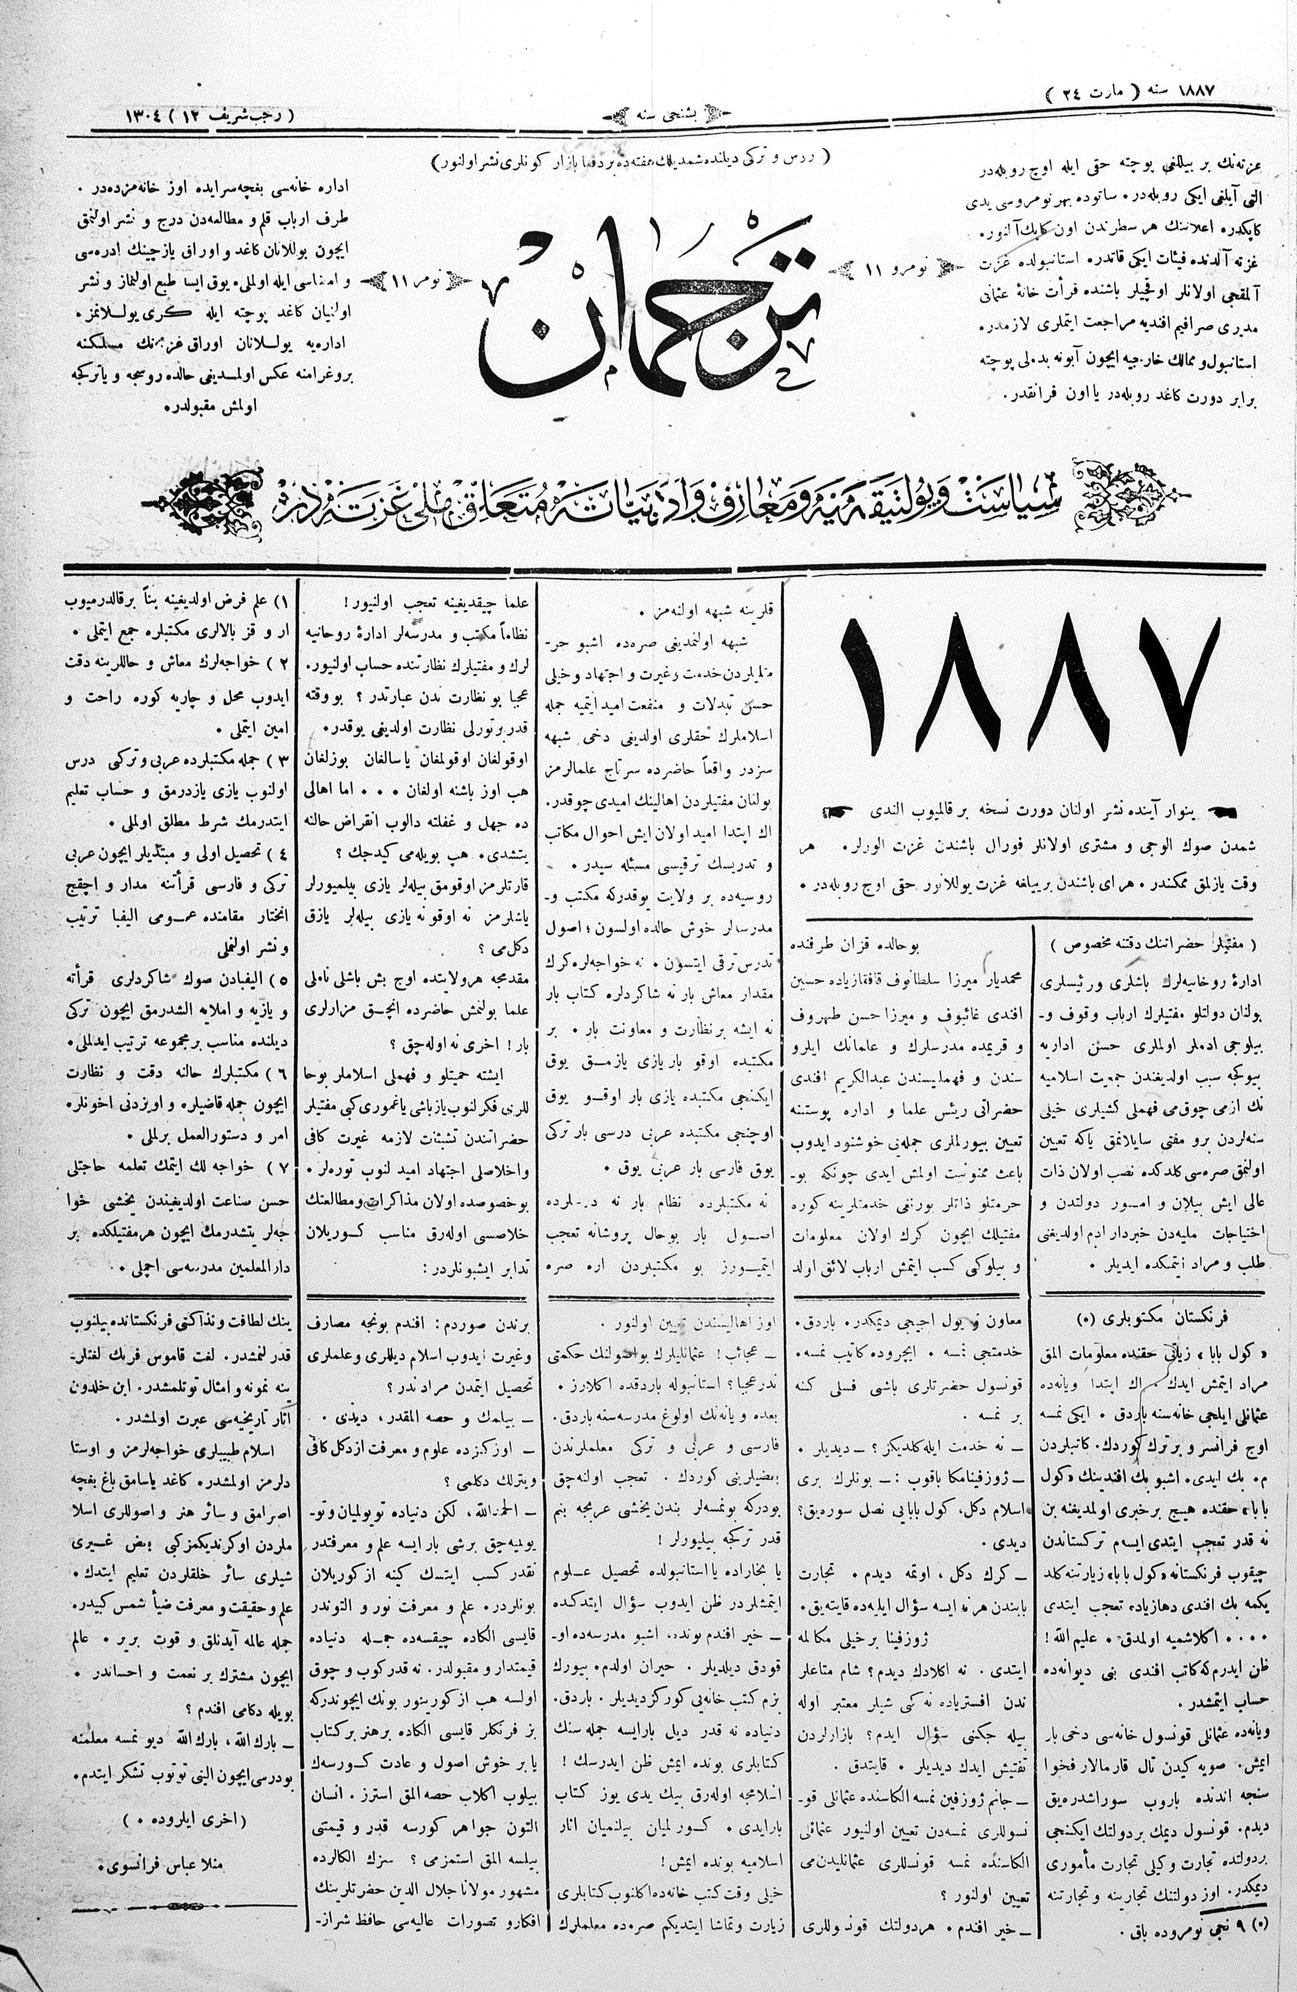 ١٨٨٧ سنه ( مارت ٢٤ )
بشنجی سنه
( رجب شریف ١٢ ) ١٣٠٤
( روس و ترکی دیلنده شمدیلك هفته‌ده بر دفعا بازار کونلری نشر اولنور )
عزته‌نك بر ییللغی پوچته حقی ایله اوچ روبله‌در
التی آیلغی ایکی روبله‌در. ساتوده بهر نومروسی یدی
کاپکدر. اعلاننك هر سطرندن اون کاپك آلنور.
غزته آلدنده فیئات ایکی قاتدر. استانبولده غزت
آلمقجی اولانلر اوقچیلر باشنده قرأت خانهٔ عثمانی
مدیری صرافیم افندیه مراجعت ایتملری لازمدر.
استانبول و ممالك خارجیه ایچون آبونه بدلی پوچته
برابر دورت کاغد روبله‌در یا اون فرانقدر.
نومرو ١١
ترجمان
نومر ١١
اداره خانه‌سی بغچه‌سرایده اوز خانه‌مزده‌در.
طرف ارباب قلم و مطالعه‌دن درج و نشر اولنمق
ایچون یوللانان کاغد و اوراق یازچینك ادره‌سی
و امضاسی ایله اولملی. یوق ایسا طبع اولنماز و نشر
اولنیان کاغد پوچته ایله کری یوللانمز.
اداره‌یه یوللانان اوراق غزته‌نك مسلکنه
پروغرامنه عکس اولمدیغی حالده روسجه و یا ترکجه
اولمش مقبولدر.
سیاست و پولتیقه مدنیه و معارف و ادبیاته متعلق ملی غزته‌در
١٨٨٧
ینوار آینده نشر اولنان دورت نسخه بر قالمیوب الندی
شمدن صوك الوجی و مشتری اولانلر فورال باشندن غزت الورلر. هر
وقت یازلمق ممکندر. هر ای باشندن بر ییلغه غزت یوللانور حقی اوچ روبله‌در.
( مفتیلر حضراتنك دقتنه مخصوص )
ادارهٔ روحانیه‌لرك باشلری و رئیسلری
بولنان دولتلو مفتیلرك ارباب وقوف و-
بیلوجی ادملر اولملری حسن اداریه
بیوکجه سبب اولدیغندن جمعیت اسلامیه
نك ازمی چوق‌می فهملی کشیلری خیلی
سنه‌لردن برو مفتی سایلانمق یاکه تعیین
اولنمق صره‌سی کلدکده نصب اولان ذات
عالی ایش بیلان و امور دولتدن و
احتیاجات ملیه‌دن خبردار ادم اولدیغنی
طلب و مراد ایتمکده ایدیلر.
بو حالده قزان طرفنده
محمدیار میرزا سلطانوف قافقازیاده حسین
افندی غائبوف و میرزا حسن طهروف
و قریمده مدرسلرك و علمانك ایلرو
سندن و فهملیسندن عبدالکریم افندی
حضراتی ریئس علما و اداره پوستنه
تعیین بیورلملری جمله‌نی خوشنود ایدوب
باعث ممنونیت اولمش ایدی چونکه بو-
حرمتلو ذاتلر بورنغی خدمتلرینه کوره
مفتیلك ایچون کرك اولان معلومات
و بیلوکی کسب ایتمش ارباب لائق اولد
قلرینه شبهه اولنه‌مز.
شبهه اولنمدیغی صره‌ده اشبو حر-
متلیلردن خدمت و غیرت و اجتهاد و خیلی
حسن تبدلات و منفعت امید ایتمیه جمله
اسلاملرك حقلری اولدیغی دخی شبهه
سزدر واقعاً حاضرده سرتاج علمالرمز
بولنان مفتیلردن اهالینك امیدی چوقدر.
اك ابتدا امید اولان ایش احوال مکاتب
و تدریسك ترقیسی مسئله سیدر.
روسیه‌ده بر ولایت یوقدرکه مکتب و-
مدرسالر خوش حالده اولسون؛ اصول
تدرس ترقی ایتسون. نه خواجه‌لره کرك
مقدار معاش بار نه شاکردلره کتاب بار
نه ایشه بر نظارت و معاونت بار. بر
مکتبده اوقو بار یازی یازمق یوق
ایکنجی مکتبده یازی بار اوقو یوق
اوچنجی مکتبده عربی درسی بار ترکی
یوق فارسی بار عربی یوق.
نه مکتبلرده نظام بار نه درسلرده
اصول بار بو حال پروشانه تعجب
ایتمیورز بو مکتبلردن اره صره
علما چیقدیغینه تعجب اولنیور!
نظاماً مکتب و مدرسه‌لر ادارهٔ روحانیه
لرك و مفتیلرك نظارتنده حساب اولنیور.
عجبا بو نظارت ندن عبارتدر؟ بو وقته
قدر بر تورلی نظارت اولدیغی یوقدر.
اوقولغان اوقولمغان یاسالغان بوزلغان
هب اوز باشنه اولغان ... اما اهالی
ده جهل و غفلته دالوب انقراض حالنه
یتشدی. هپ بویله‌می کیدجك؟
قارتلرمز اوقومق بیله‌لر یازی بیلمیورلر
یاشلرمز نه اوقو نه یازی بیله‌لر یازق
دکل‌می؟
مقدمجه هر ولایتده اوچ بش باشلی نامی
علما بولنمش حاضرده انجق مزارلری
بار! اخری نه اوله‌جق؟
ایشته حمیتلو و فهملی اسلاملر بو حا
للری فکر لنوب یاز باشی یاغموری کبی مفتیلر
حضراتندن تشبثات لازمه غیرت کافی
و اخلاصلی اجتهاد امید لنوب توره‌لر.
بو خصوصده اولان مذاکرات و مطالعتك
خلاصسی اوله‌رق مناسب کوریلان
تدابر ایشبونلردر:
١) علم فرض اولدیغینه بناً بر قالدرمیوب
ار و قز بالالری مکتبلره جمع ایتملی.
٢) خواجه‌لرك معاش و حاللرینه دقت
ایدوب محل و چاریه کوره راحت و
امین ایتملی.
٣) جمله مکتبلرده عربی و ترکی درس
اولنوب یازی یازدرمق و حساب تعلیم
ایتدرمك شرط مطلق اولملی.
٤) تحصیل اولی و مبتدیلر ایچون عربی
ترکی و فارسی قرأتنه مدار و اچقچ
انختار مقامنده عمومی الیفبا ترتیب
و نشر اولنملی
٥) الیفبادن صوك شاکردلری قرأته
و یازیه و املایه الشدرمق ایچون ترکی
دیلنده مناسب بر مجموعه ترتیب ایدلملی.
٦) مکتبلرك حالنه دقت و نظارت
ایچون جمله قاضیلره و اویزدنی اخونلره
امر و دستورالعمل برلملی.
٧) خواجه لك ایتمك تعلمه حاجتلی
حسن صناعت اولدیغیندن یخشی خوا
جه‌لر یتشدرمك ایچون هر مفتیلکده بر
دارالمعلمین مدرسه‌سی اچملی.
فرنکستان مکتوبلری (٥)
«کول بابا» زیانی حقنده معلومات المق
مراد ایتمش ایدك. اك ابتدا ویانه‌ده
عثمانلی ایلچی خانه‌سنه باردق. ایکی نمسه
اوچ فرانسز و بر ترك کوردك. کاتبلردن
م. بك ایدی. اشبو بك افندینك «کول
بابا» حقنده هیچ بر خبری اولمدیغنه بن
نه قدر تعجب ایتدی ایسم ترکستاندن
چیقوب فرنکستانه «کول بابا» زیارتنه کلد
یکمه بك افندی دها زیاده تعجب ایتدی
.... اکلاشمیه اولمدق. علیم الله!
ظن ایدرم که کاتب افندی بنی دیوانه‌ده
حساب ایتمشدر.
ویانه‌ده عثمانلی قونسول خانه‌سی دخی بار
ایمش. صویه کیدن تال قارمالار فحوا
سنجه اندنده باروب سوراشدره‌یق
دیدم. قونسول دیمك بر دولتك ایکنجی
بر دولتده تجارت وکیلی تجارت مأموری
دیمکدر. اوز دولتنك تجارینه و تجارتنه
(٥) ٩ نجی نومروده باق.
معاون و یول اجیجی دیمکدر. باردق.
خدمتجی نمسه. ایچروده کاتیب نمسه.
قونسول حضرتلری باشی فسلی کنه
بر نمسه.
ــ نه خدمت ایله کلدیکز؟ ــ دیدیلر.
ــ ژوزفینامکا باقوب: ــ بونلرك بری
اسلام دکل، کول بابایی نصل سوره‌یق؟
دیدی.
ــ کرك دکل، اوتمه دیدم. تجارت
بابندن هر نه ایسه سؤال ایلیه‌ده قایته‌یق.
ژوزفینا بر خیلی مکالمه
ایتدی. نه اکلادك دیدم؟ شام متاعلر
ندن افستریاده نه کی شیلر معتبر اوله
بیله جکنی سؤال ایدم؟ بازارلردن
تفتیش ایدك دیدیلر. قایتدق.
ــ جانم ژوزفین نمسه الکاسنده عثمانلی قو-
نسوللری نمسه‌دن تعیین اولنیور عثمانلی
الکاسنده نمسه قونسللری عثمانلیدن‌می
تعیین اولنور؟
ــ خیر افندم. هر دولتك قونسوللری
اوز اهالیسندن تعیین اولنور.
ــ عجائب! عثمانلیلرك بو اصولنك حکمتی
ندر عجبا؟ استانبوله باردقده اکلارز.
بعده ویانه‌نك اولوغ مدرسه‌سنه باردق.
فارسی و عربی و ترکی معلملرندن
بعضیلرینی کوردك. تعجب اولنه‌جق
بودرکه بو نمسه‌لر بندن یخشی عربجه بنم
قدر ترکجه بیلیورلر!
یا بخاراده یا استانبولده تحصیل علوم
ایتمشلردر ظن ایدوب سؤال ایتدکده
ــ خیر افندم بونده، اشبو مدرسه‌ده او-
قودق دیلدیلر. حیران اولدم. بیورك
بزم کتب خانه‌یی کورکز دیدیلر. باردق.
دنیاده نه قدر دیل بار ایسه جمله سنك
کتابلری بونده ایمش ظن ایدرسك!
اسلامجه اوله‌رق بیك یدی یوز کتاب
بار ایدی. کورلمیان بیلنمیان اثار
اسلامیه بونده ایمش!
خیلی وقت کتب خانه‌ده اکلنوب کتابلری
زیارت و تماشا ایتدیکم صره‌ده معلملرك
برندن صوردم: افندم بونجه مصارف
و غیرت ایدوب اسلام دیللری و علملری
تحصیل ایتمدن مراد ندر؟
ــ بیلمك و حصه المقدر، دیدی.
ــ اوزکزده علوم و معرفت از دکل کافی
ویترلك دکلمی؟
ــ الحمدالله، لکن دنیاده تویولمیان و تو-
یولمیه‌جق برشی بار ایسه علم و معرفتدر
نقدر کسب ایتسك کینه از کوریلان
بونلردر. علم و معرفت نور و التوندر
قایسی الکاده چیقسه‌ده جمله دنیاده
قیمتدار و مقبولدر. نه قدر کوب و چوق
اولسه هب از کورینور بونك ایچوندرکه
بز فرنکلر قایسی الکاده بر هنر بر کتاب
یا بر خوش اصول و عادت کورسه‌ك
بیلوب اکلاب حصه المق استرز. انسان
التون جواهر کورسه قدر و قیمتی
بیلسه المق استمزمی؟ سزك الکالرده
مشهور مولانا جلال الدین حضرتلرینك
افکار و تصورات عالیه‌سی حافظ شیراز-
ینك لطافت و نذاکتی فرنکستانده بیلنوب
قدر لنمشدر. لغت قاموس فرنك لغتلر-
ینه نمونه و امثال توتلمشدر. ابن خلدون
اثار تاریخیه‌سی عبرت اولمشدر.
اسلام طبیبلری خواجه‌لرمز و اوستا
دلرمز اولمشدر. کاغد یاسامق باغ بغچه
اصرامق و سائر هنر و اصوللری اسلا
ملردن اوکرندیکمز کبی بعض غیری
شیلری سائر خلقلردن تعلیم ایتدك.
علم و حقیقت و معرفت ضیأ شمس کبیدر.
جمله عالمه آیدنلق و قوت بریر. عالم
ایچون مشترك بر نعمت و احساندر.
بویله دکلمی افندم؟
ــ بارك الله، بارك الله دیو نمسه معلمنه
بو درسی ایچون الینی توتوب تشکر ایتدم.
( اخری ایلروده. )
منلا عباس فرانسوی.